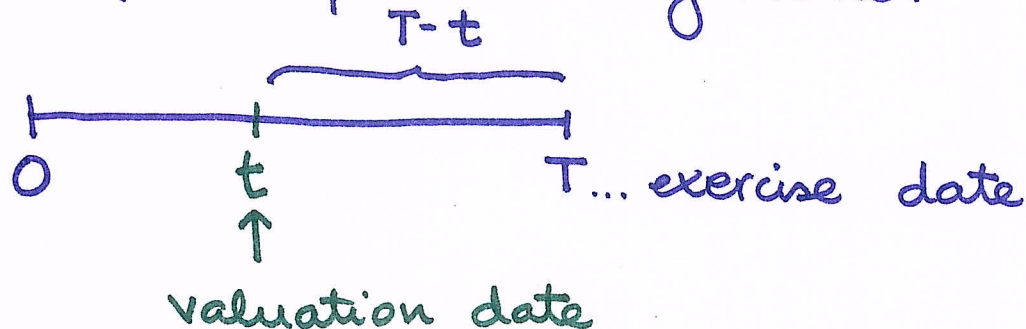 T-t
O
t
T... exercise date
valuation date